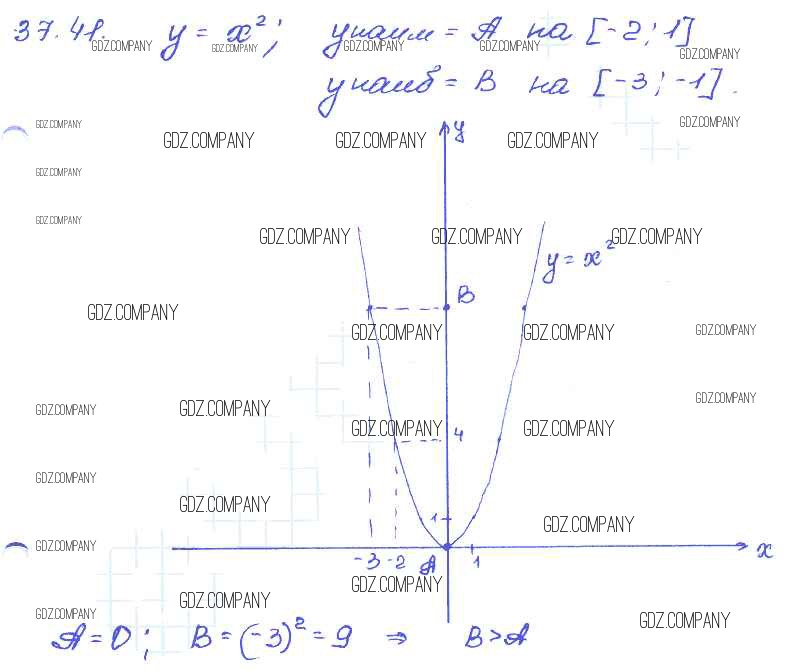 37.41. y = x²; yнаим = A на [-2; 1]
GDZ.COMPANY GDZ.COMPANY GDZ.COMPANY GDZ.COMPANY GDZ.COMPANY
yнаиб = B на [-3; -1].
GDZ.COMPANY GDZ.COMPANY
y
GDZ.COMPANY GDZ.COMPANY GDZ.COMPANY
GDZ.COMPANY
GDZ.COMPANY
GDZ.COMPANY GDZ.COMPANY GDZ.COMPANY
y = x²
B
GDZ.COMPANY
GDZ.COMPANY GDZ.COMPANY GDZ.COMPANY
GDZ.COMPANY
GDZ.COMPANY GDZ.COMPANY
GDZ.COMPANY 4 GDZ.COMPANY
GDZ.COMPANY
GDZ.COMPANY
1 GDZ.COMPANY
GDZ.COMPANY x
-3 -2 A 1
GDZ.COMPANY
GDZ.COMPANY
GDZ.COMPANY GDZ.COMPANY
A = 0; B = (-3)² = 9 ⇒ B > A